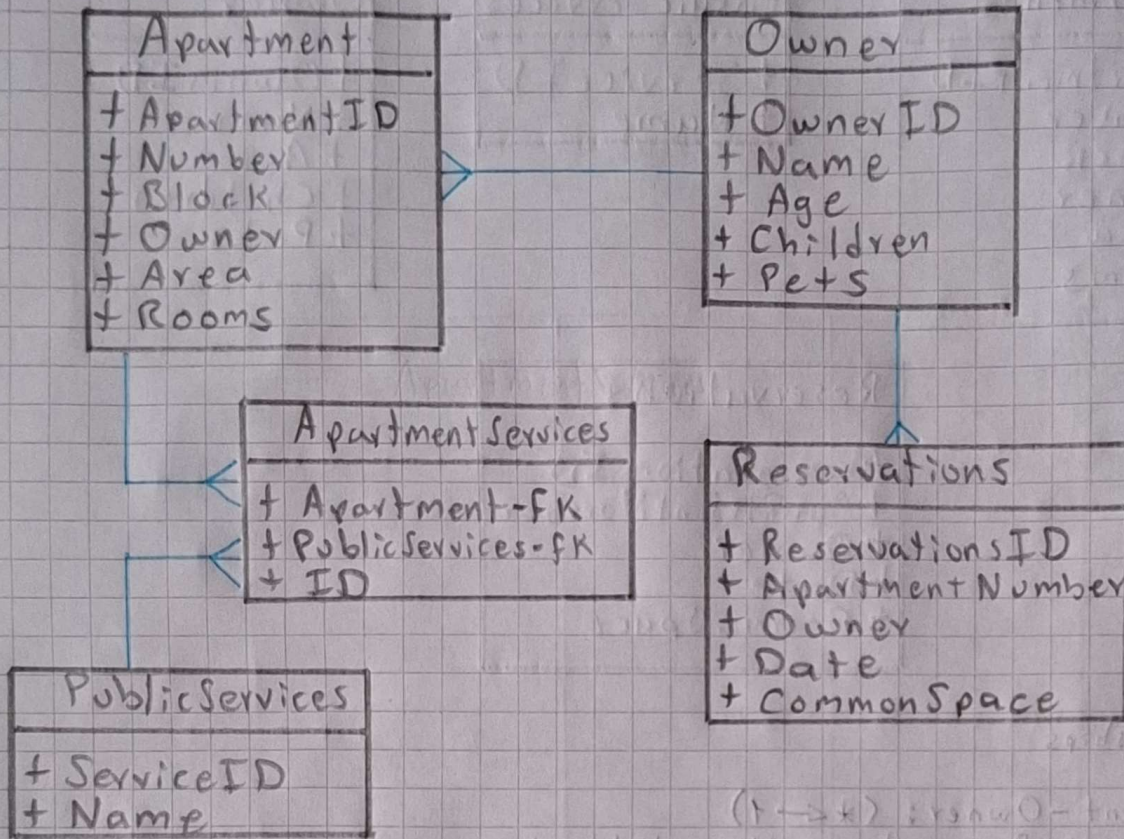 Apartment
+ ApartmentID
+ Number
+ Block
+ Owner
+ Area
+ Rooms
Owner
+ OwnerID
+ Name
+ Age
+ Children
+ Pets
ApartmentServices
+ Apartment-fK
+ PublicServices-fK
+ ID
Reservations
+ ReservationsID
+ ApartmentNumber
+ Owner
+ Date
+ CommonSpace
PublicServices
+ ServiceID
+ Name